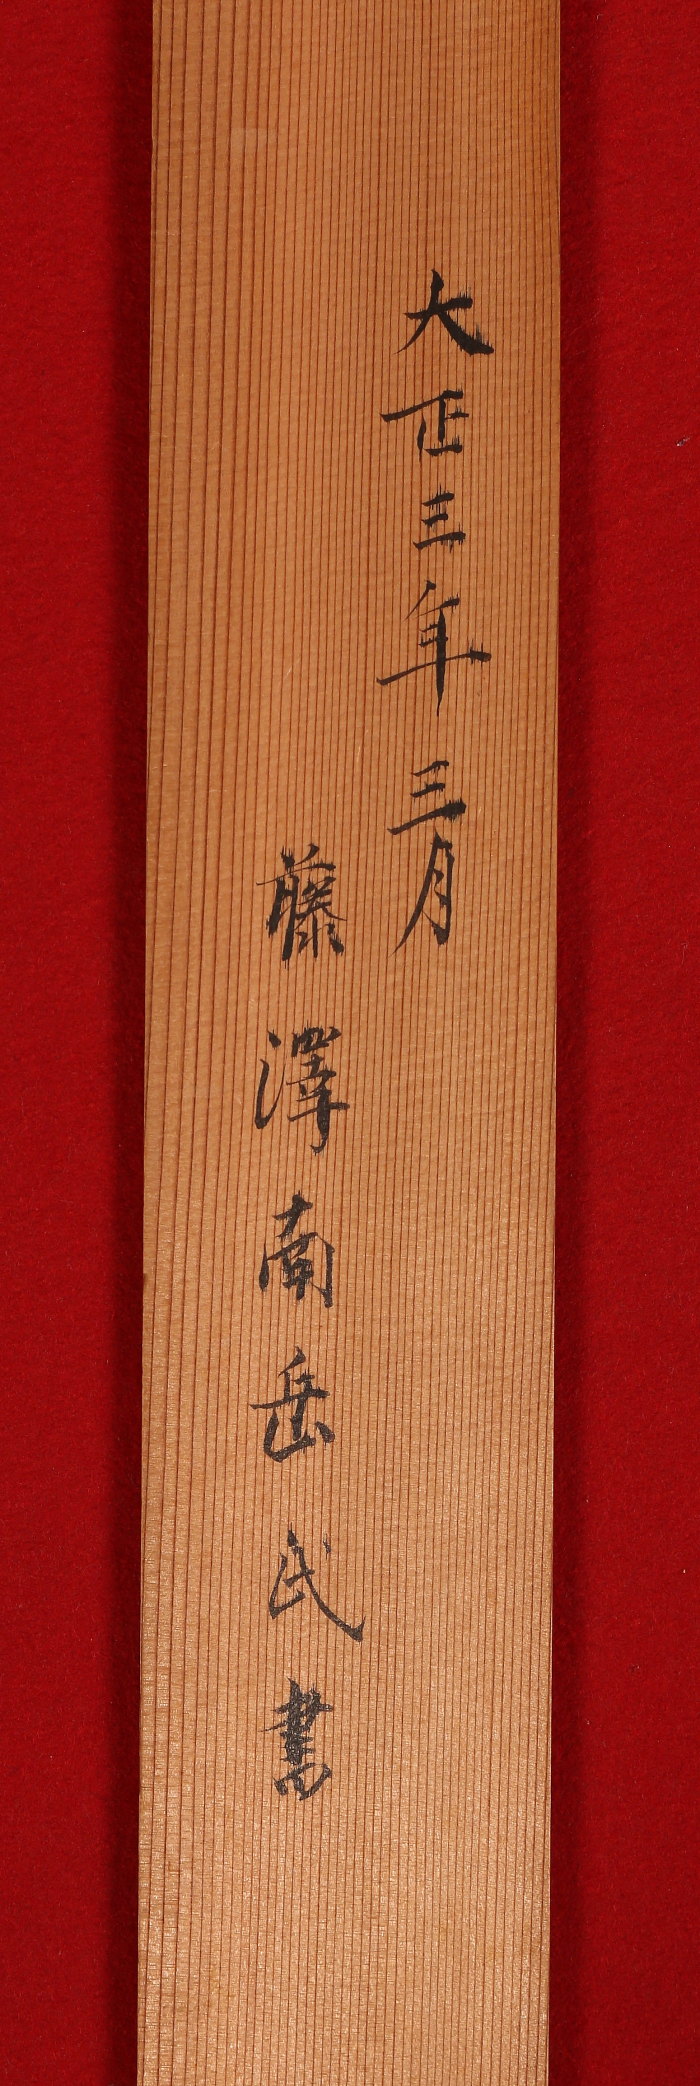 大正三年三月
藤澤南岳氏書